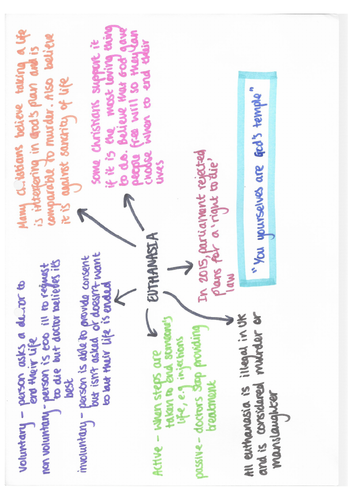 Many Christians believe taking a life
is interfering in God's plan and is
comparable to murder. Also believe
it is against sanctity of life
Some christians support it
if it is the most loving thing
to do. Believe that God gave
people free will so they can
choose when to end their
lives
"You yourselves are God's temple"
EUTHANASIA
In 2015, parliament rejected
plans for a 'right to die'
law
Voluntary - person asks a doctor to
end their life
non voluntary - person is too ill to request
to die but doctor believes its
best
involuntary - person is able to provide consent
but isn't asked or doesn't want
to but their life is ended
Active - when steps are
taken to end someone's
life, e.g injections
passive - doctors stop providing
treatment
All euthanasia is illegal in UK
and is considered murder or
manslaughter